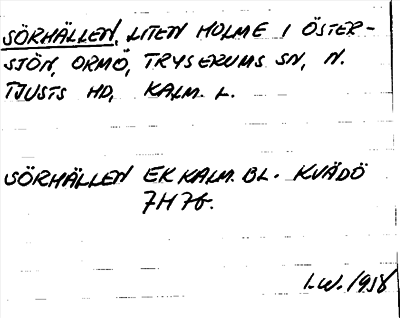 SÖRHÄLLEN, LITEN HOLME I ÖSTER-
SJÖN, ORMÖ, TRYSERUMS SN, N.
TJUSTS HD, KALM. L.
SÖRHÄLLEN EK KALM. BL. KVÄDÖ
7H7G.
I.W. 1958